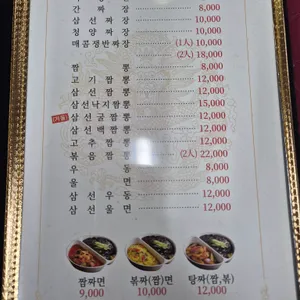 간 짜 장 8,000
삼 선 짜 장 10,000
청 양 짜 장 10,000
매콤쟁반짜장 (1人) 10,000
(2人) 18,000
짬 뽕 8,000
고 기 짬 뽕 12,000
삼 선 짬 뽕 12,000
삼선낙지짬뽕 15,000
(겨울) 삼 선 굴 짬 뽕 12,000
삼 선 백 짬 뽕 12,000
고 추 짬 뽕 12,000
볶 음 짬 뽕 (2人) 22,000
우 동 8,000
울 면 8,000
삼 선 우 동 12,000
삼 선 울 면 12,000
짬짜면 9,000
볶짜(짬)면 10,000
탕짜(짬,볶) 12,000